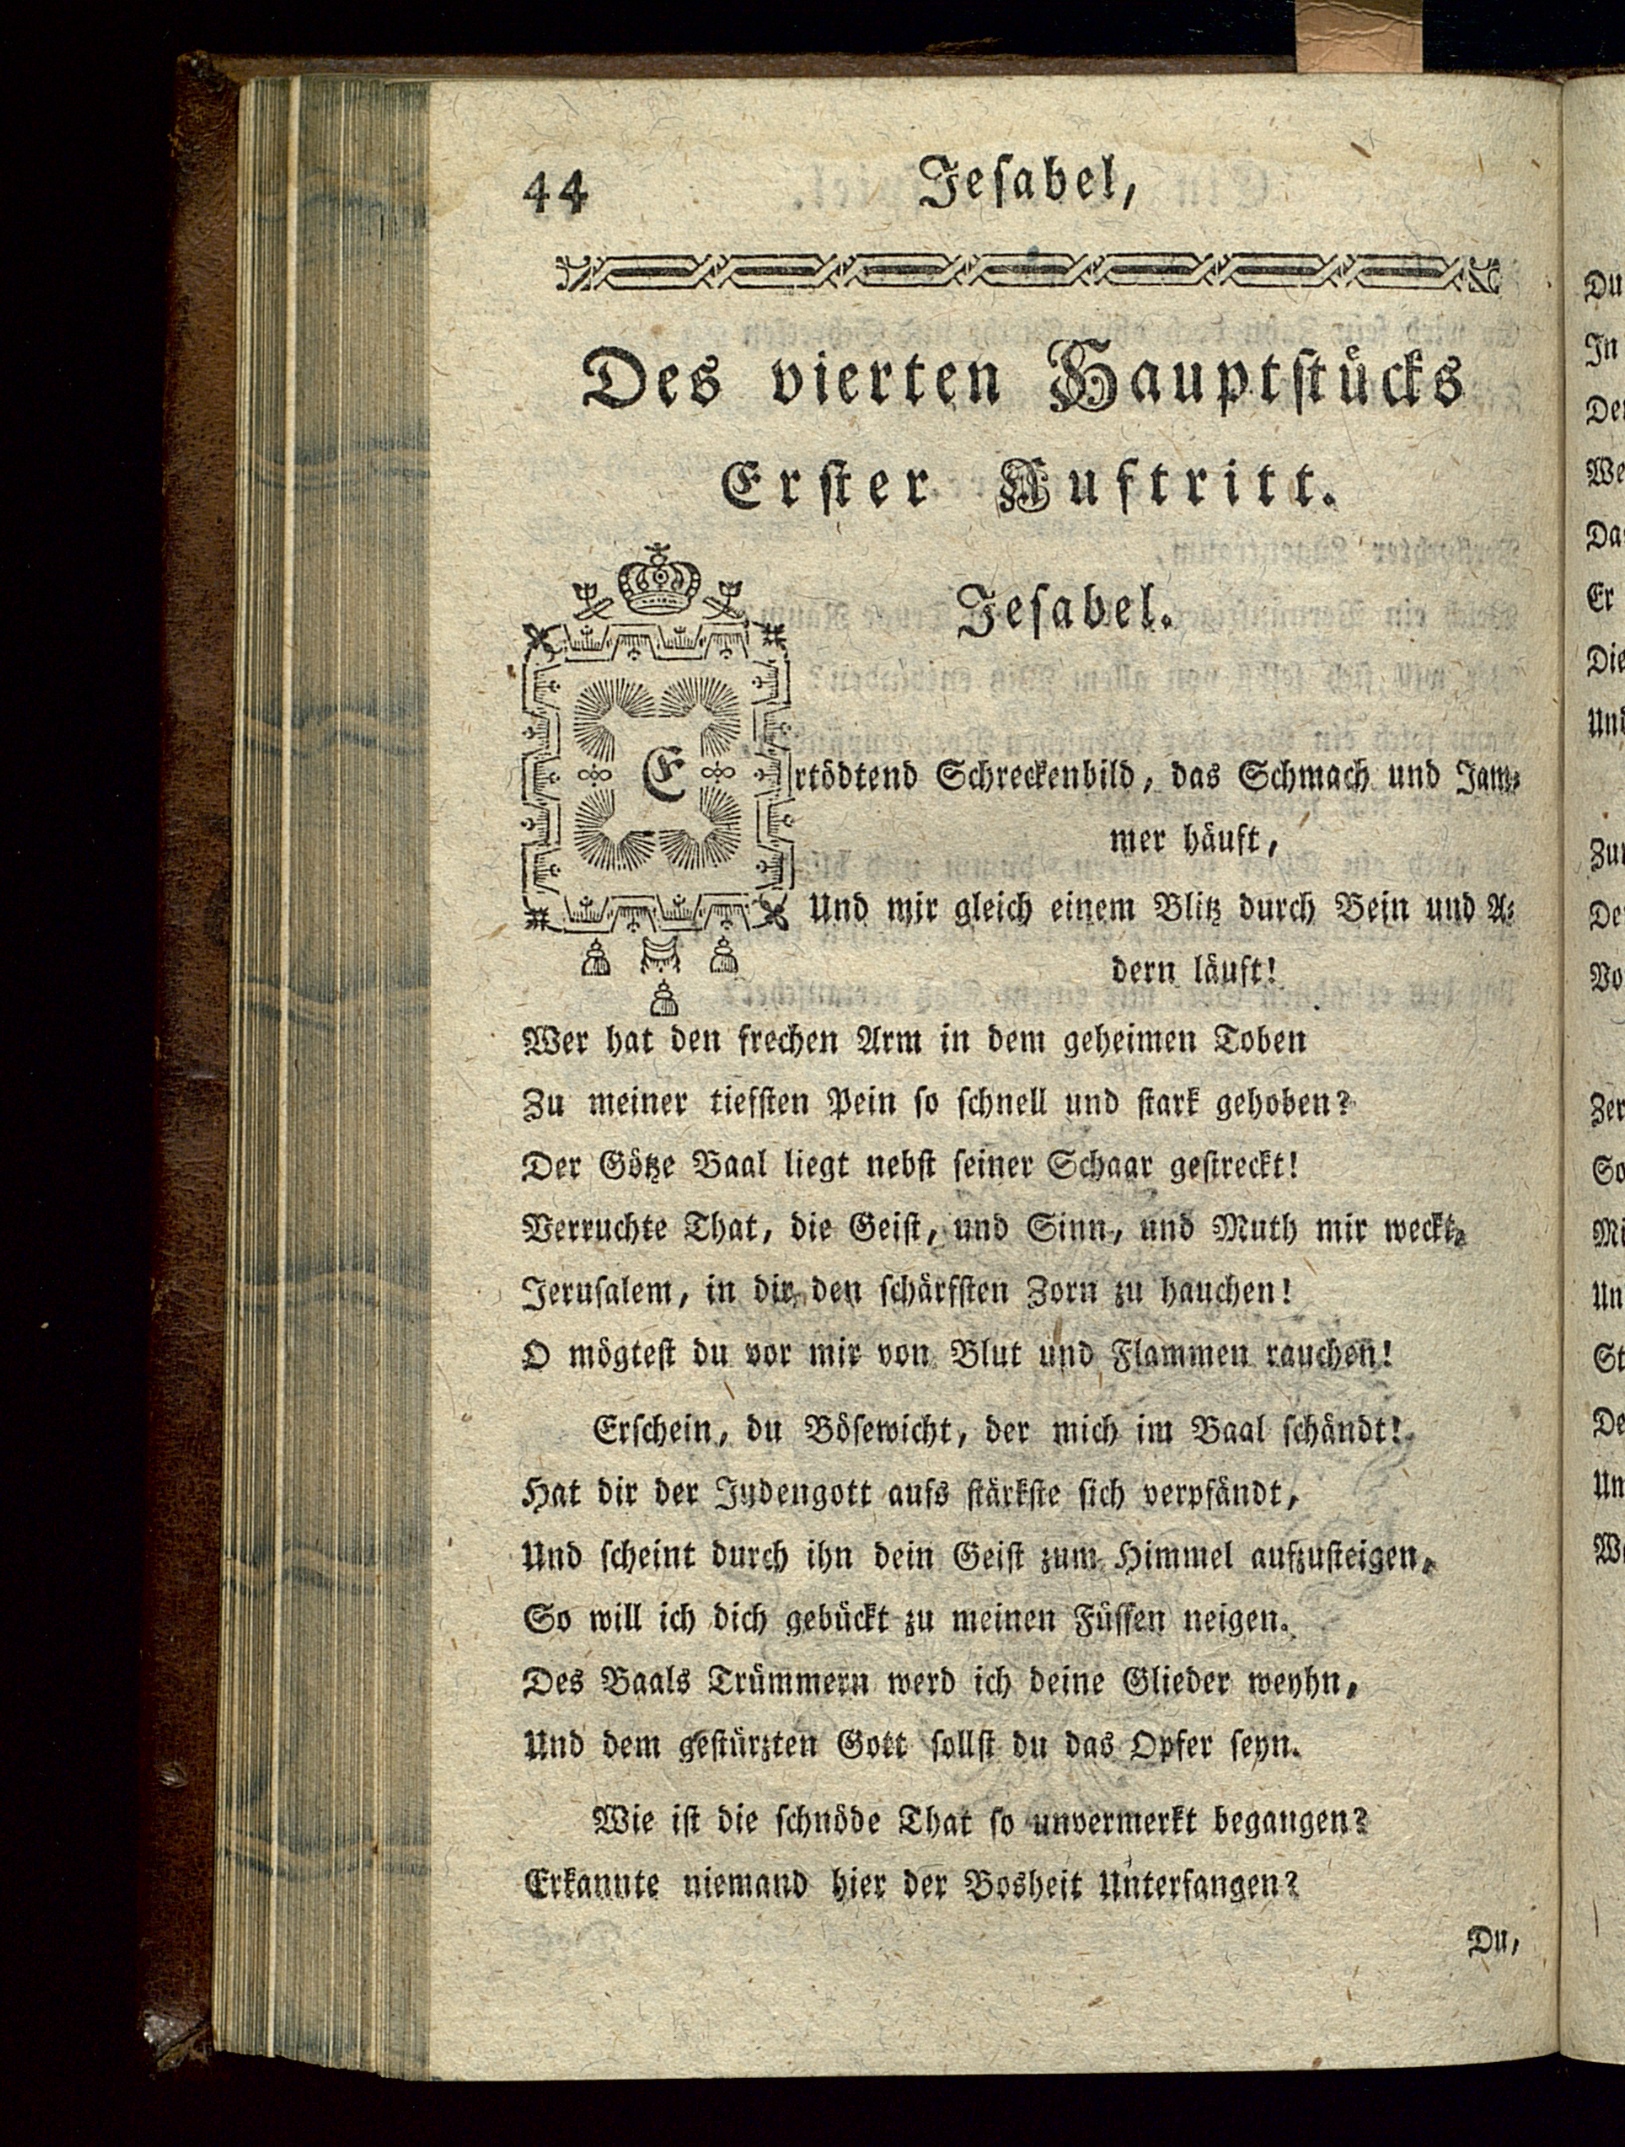 44
Jeſabel,
Des vierten Hauptſtücks
Erſter Auftritt.
Jeſabel.
Ertödtend Schreckenbild, das Schmach und Jam⸗
mer häuft,
Und mir gleich einem Blitz durch Bein und A⸗
dern läuft!
Wer hat den frechen Arm in dem geheimen Toben
Zu meiner tiefſten Pein ſo ſchnell und ſtark gehoben?
Der Götze Baal liegt nebſt ſeiner Schaar geſtreckt!
Verruchte That, die Geiſt, und Sinn, und Muth mir weckt,
Jeruſalem, in dir den ſchärfſten Zorn zu hauchen!
O mögteſt du vor mir von Blut und Flammen rauchen!
Erſchein, du Böſewicht, der mich im Baal ſchändt!
Hat dir der Judengott aufs ſtärkſte ſich verpfändt,
Und ſcheint durch ihn dein Geiſt zum Himmel aufzuſteigen,
So will ich dich gebückt zu meinen Füſſen neigen.
Des Baals Trümmern werd ich deine Glieder weyhn,
Und dem geſtürzten Gott ſollſt du das Opfer ſeyn.
Wie iſt die ſchnöde That ſo unvermerkt begangen?
Erkannte niemand hier der Bosheit Unterfangen?
Du,
Du
In
Der
We
Da
Er
Die
Und
Zu
De
Vo
Zer
So
Mi
Un
St
De
Un
We